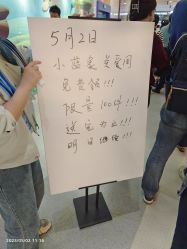 5月2日
免费领!!!
限量100份!!!
送完为止!!!
明日继续!!!
2023/05/02 11:16